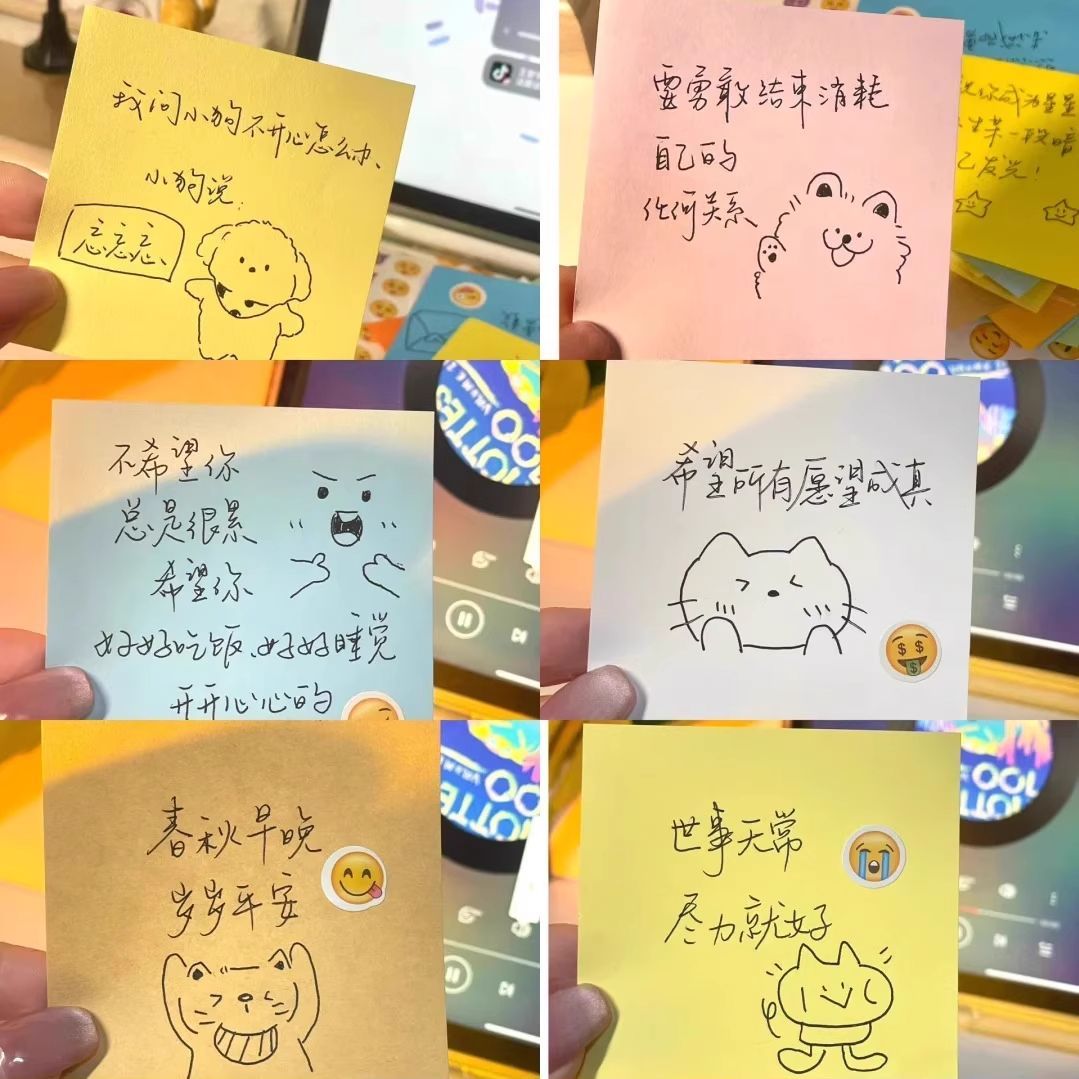 我问小狗不开心怎么办、
小狗说:
忘忘忘、
要勇敢结束消耗
自己的
任何关系
你成为星星
某一段暗
己发光!
不希望你
总是很累
希望你
好好吃饭、好好睡觉
开开心心的
希望所有愿望成真
春秋早晚
岁岁平安
世事无常
尽力就好